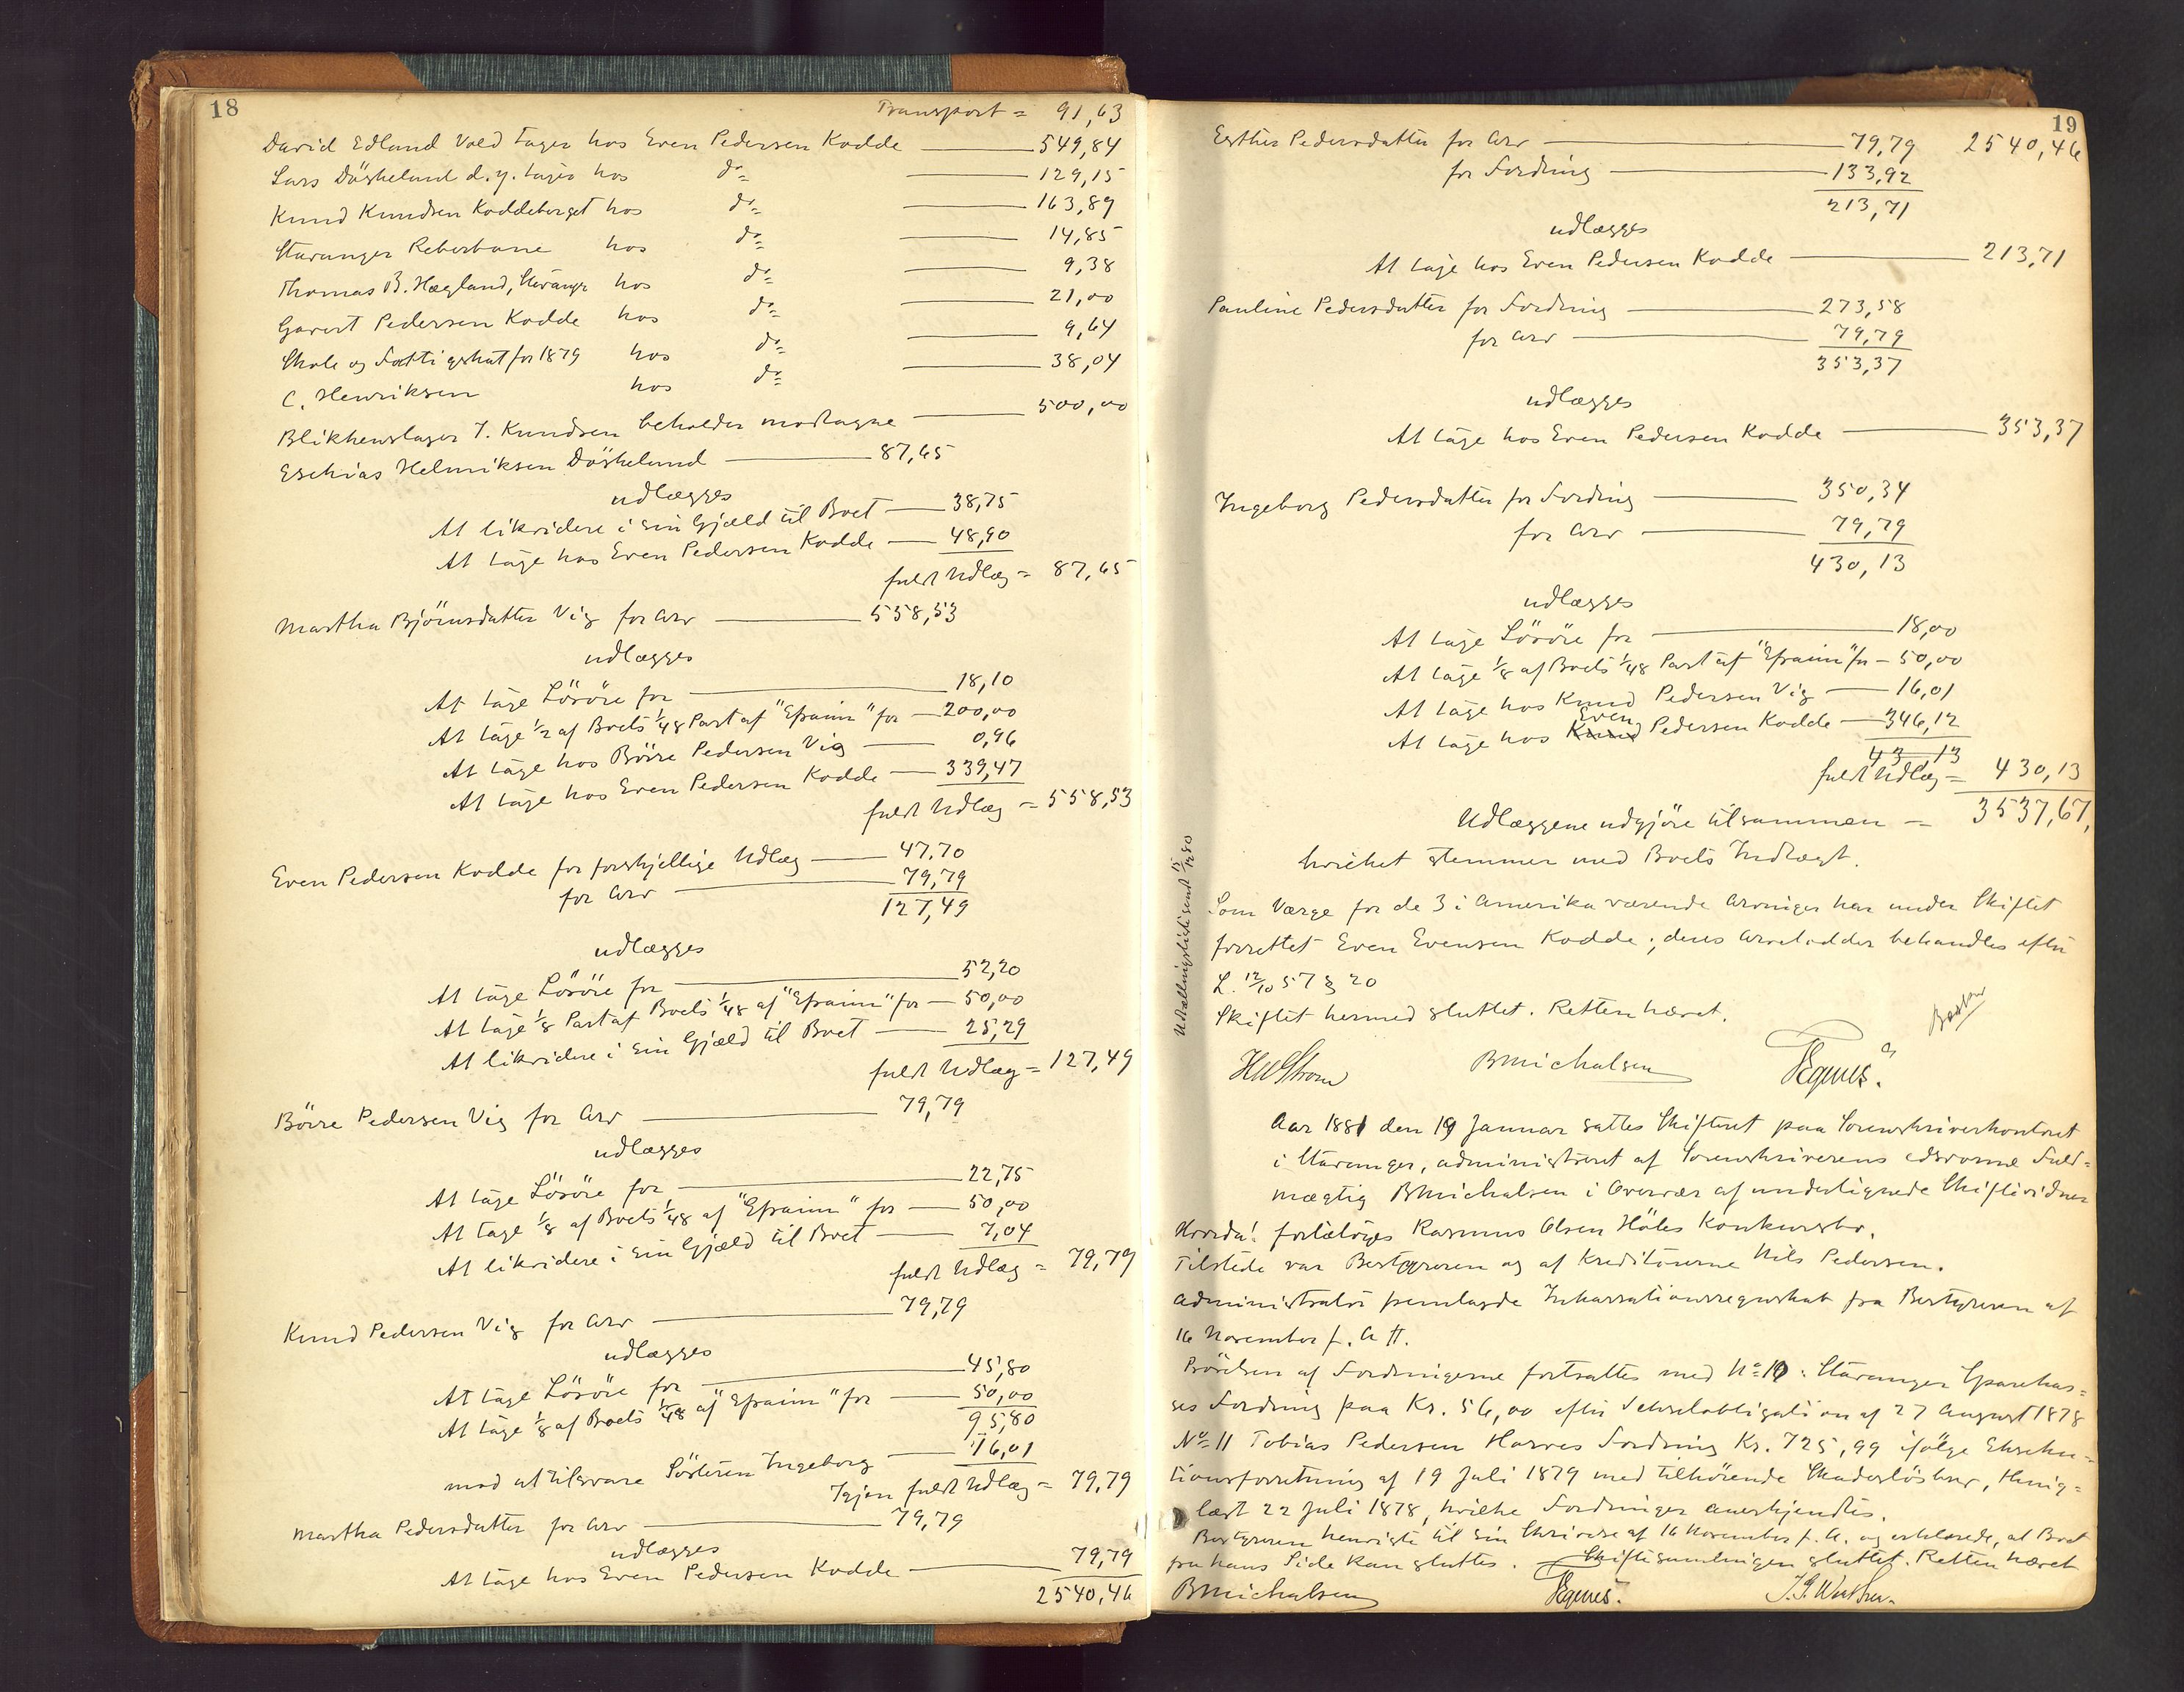 18
Transport = 91,63
David Edland Vold tager hos Even Pedersen Kodde 549,84
Lars Döskeland d.y. tager hos do= 129,15
Knud Knudsen Koddeberget hos do= 163,89
Stavanger Reberbane hos do= 14,85
Thomas B. Hægland, Stavanger hos do= 9,38
Gavert Pedersen Kodde hos do= 21,00
Skole og Fattigskat for 1879 hos do= 9,64
C. Henriksen hos do= 38,04
Blikkenslager J. Knudsen beholder modtagne 500,00
Esekias Helmiksen Döskeland 87,65
udlægges
At likvidere i sin Gjæld til Boet 38,75
At tage hos Even Pedersen Kodde 48,90
fuldt Udlæg = 87,65
Martha Björnsdatter Vig for Arv 558,53
udlægges
At tage Lösöre for 18,10
At tage 1/2 af Boets 1/48 Part af "Efraim" for 200,00
At tage hos Börre Pedersen Vig 0,96
At tage hos Even Pedersen Kodde 339,47
fuldt Udlæg = 558,53
Even Pedersen Kodde for forskjellige Udlæg 47.70
for Arv 79,79
127,49
udlægges
At tage Lösöre for 52,20
At tage 1/8 Part af Boets 1/48 af "Efraim" for 50,00
At likvidere i sin Gjæld til Boet 25,29
fuldt Udlæg = 127,49
Börre Pedersen Vig for Arv 79,79
udlægges
At tage Lösöre for 22,75
At tage 1/8 af Boets 1/48 af "Efraim" for 50,00
At likvidere i sin Gjæld til Boet 7,04
fuldt Udlæg = 79,79
Knud Pedersen Vig for Arv 79,79
udlægges
At tage Lösöre for 45,80
At tage 1/8 af Boets 1/48 af "Efraim" for 50,00
95,80
mod at tilsvare Sösteren Ingeborg 16,01
Igjen fuldt Udlæg = 79,79
Martha Pedersdatter for Arv 79,79
udlægges
At tage hos Even Pedersen Kodde 79,79
2540,46
19
Esther Pedersdatter for Arv 79,79 2540,46
for Fordring 133,92
213,71
udlægges
At tage hos Even Pedersen Kodde 213,71
Pauline Pedersdatter for Fordring 273,58
for Arv 79,79
353,37
udlægges
At tage hos Even Pedersen Kodde 353,37
Ingeborg Pedersdatter for Fordring 350,34
for Arv 79,79
430,13
udlægges
At tage Lösöre for 18,00
At tage 1/8 af Boets 1/48 Part af "Efraim" for 50,00
At tage hos Knud Pedersen Vig 16,01
At tage hos Knud Even Pedersen Kodde 346,12
43 13
fuldt Udlæg = 430,13
Udlæggene udgjöre tilsammen = 3537,67,
hvilket stemmer med Boets Indtægt.
Som Værge for de 3 i Amerika værende Arvinger har under Skiftet
forrettet Even Evensen Kodde; deres Arvelodder behandles efter
L. 12/10 57 § 20
Skiftet hermed sluttet. Retten hævet.
HWStrom BMichalsen
Udlodningsliste sendt 15/1280
Aar 1881 den 19 Januar sattes Skifteret paa Sorenskriverkontoret
i Stavanger, administreret af Sorenskriverens edsvorne Fuld=
mægtig BMichalsen i Overvær af underlignede Skiftevidner
Hvorda! foretoges Rasmus Olsen Höles Konkursbo.
Tilstede var Bestyreren og af Kreditorerne Nils Pedersen.
Administrator fremlagde Inkassationsregnskab fra Bestyreren af
16 November f. A #.
Prövelsen af Fordringerne fortsattes med No=10: Stavanger Sparekas=
ses Fordring paa Kr. 56,00 efter Vekselobligation af 27 August 1878
No=11 Tobias Pedersen Horves Fordring Kr. 725,99 ifölge Ekseku=
tionsforretning af 19 Juli 1879 med tilhörende Skadeslösbrev, thing=
læst 22 Juli 1878, hvilke Fordringer anerkjendtes.
Bestyreren henviste til sin Skrivelse af 16 November f. A. og erklærede, at Boet
fra hans Side kan sluttes. Skiftesamlingen sluttet. Retten hævet
BMichalsen